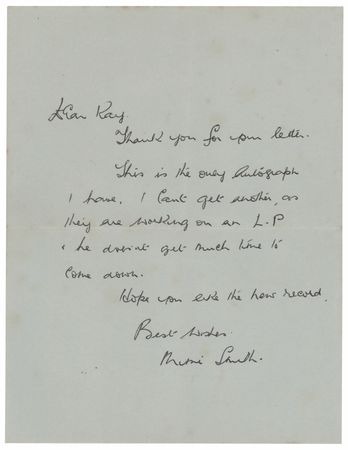 Dear Kay.
Thank you for your letter.
This is the only Autograph
I have. I can't get another, as
they are working on an L.P
& he doesn't get much time to
come down.
Hope you like the new record.
Best wishes.
Mimi Smith.